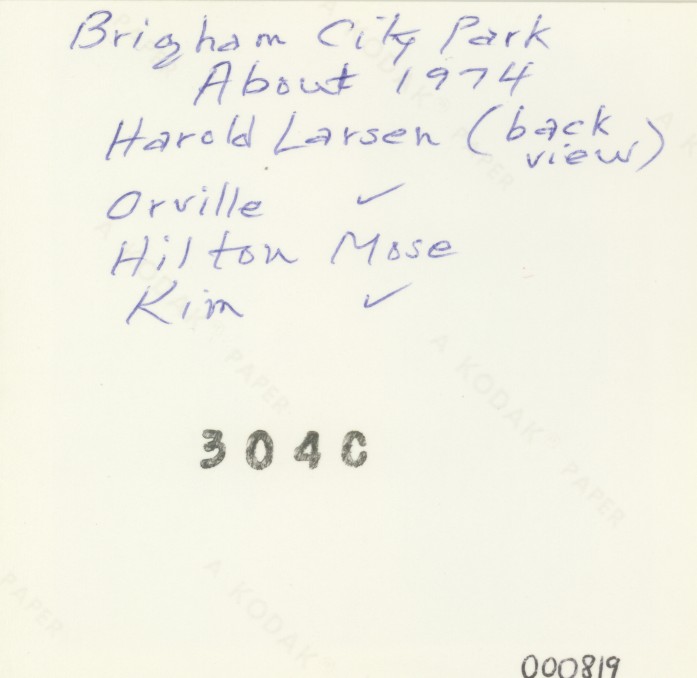 Brigham City Park
About 1974
Harold Larsen (back view)
Orville ✓
Hilton Mose
Kim ✓
A KODAK PAPER
A KODAK PAPER
3040
A KODAK PAPER
PAPER
000819